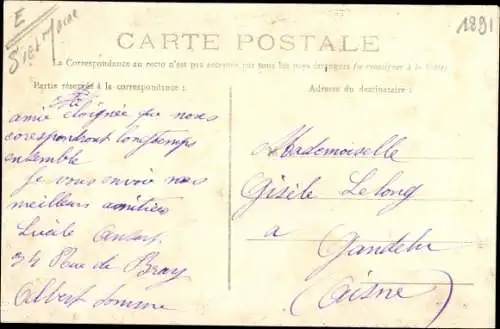 E
1891
CARTE POSTALE
La Correspondance au recto n'est pas acceptée par tous les pays étrangers (se renseigner à la Poste)
Partie réservée à la correspondance :
Adresse du destinataire :
amie éloignée que nous
corespontront longtemps
ensemble
Je vous envoie mes
meilleurs amitiés
Lucile
24 Rue de Bray
Albert Somme
Mademoiselle
Gisèle Lelong
a
Gandelu
(Aisne)